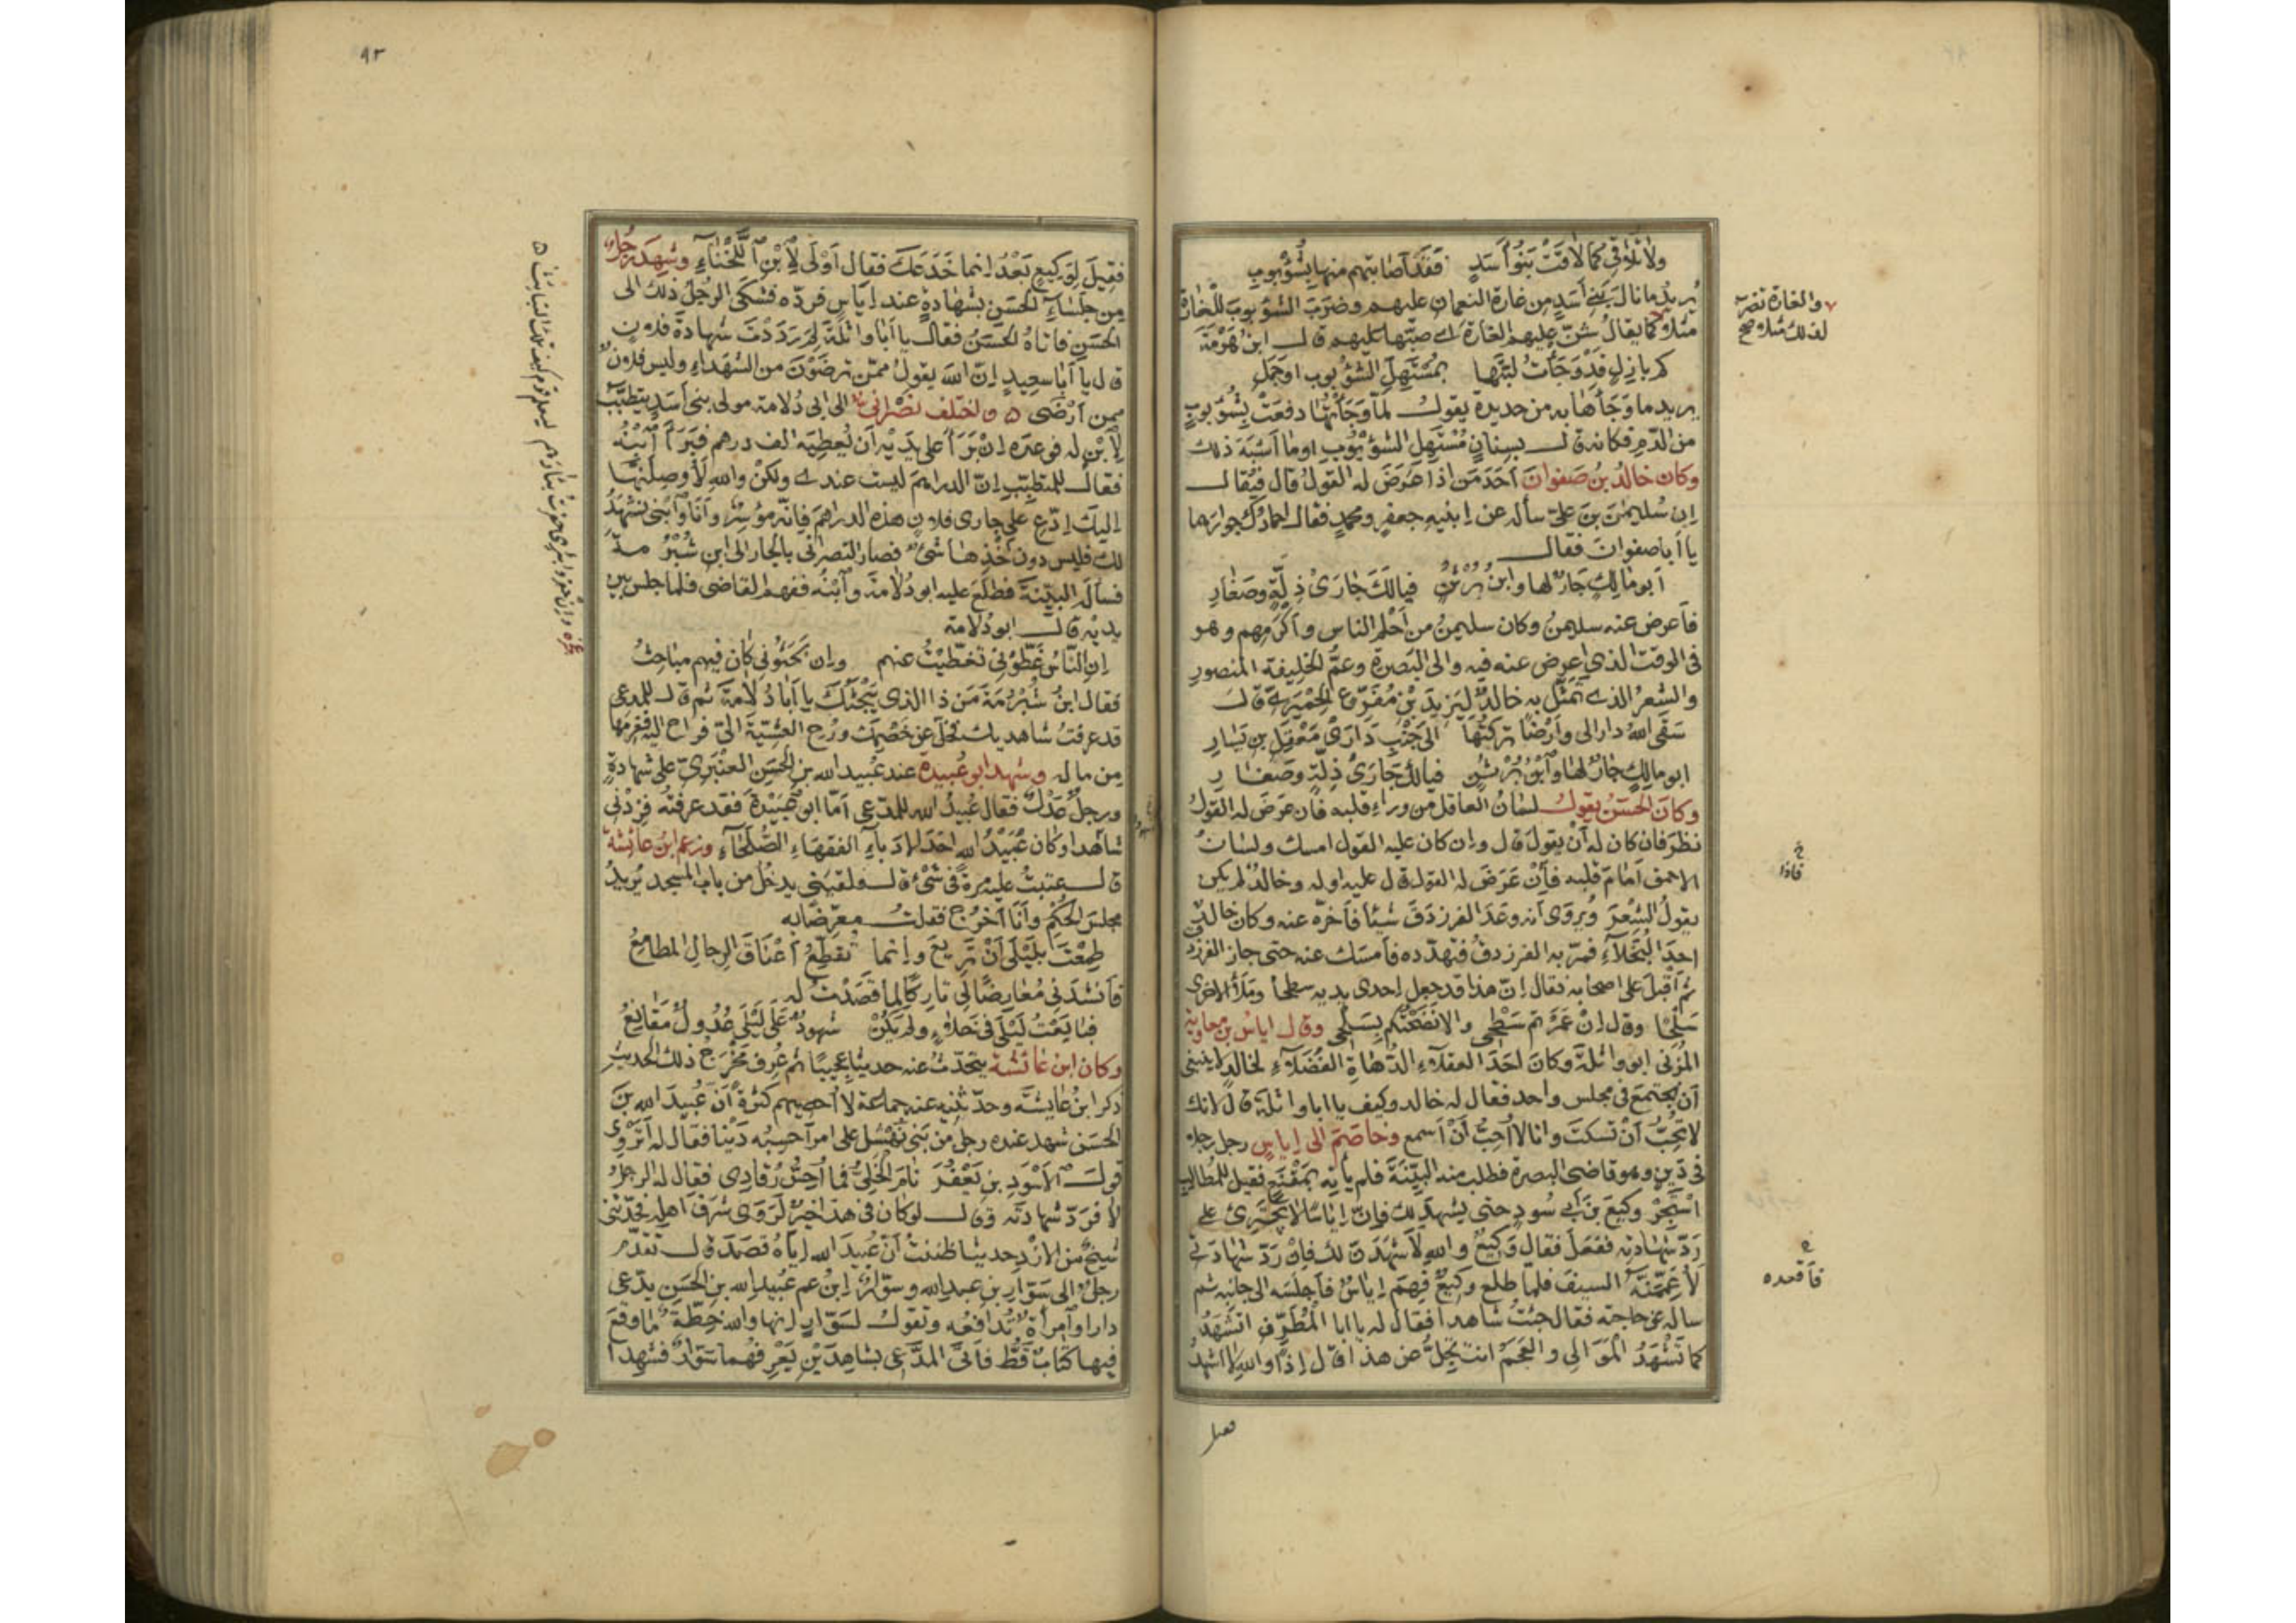 ولا تلاقي كما لاقت بنو أسد فقد أصابتهم منها بشؤبوب
يريد ما نال بني أسد من غارة النعمان عليهم وضرب الشؤبوب للغارة
مثلا وكما يقال شن عليهم الغارة أي صبها عليهم قال ابن هرمة
كم بازل قد وجأت لبتها بمستهل الشؤبوب او جمل
يريد ما وجأها به من حديدة يقول لما وجأتها دفعت بشؤبوب
من الدم فكانه قال بسنان مستهل الشؤبوب او ما أشبه ذلك
وكان خالد بن صفوان أحد من اذا عرض له القول قال فيقال
ان سليمن بن علي سأله عن ابنيه جعفر ومحمد فقال احمادك جوارهما
يا أبا صفوان فقال
أبو مالك جار لها وابن برثن فيا لك جاري ذلة وصغار
فأعرض عنه سليمن وكان سليمن من أحلم الناس وأكرمهم وهو
في الوقت الذي اعرض عنه فيه والى البصرة وعم الخليفة المنصور
والشعر الذي تمثل به خالد ليزيد بن مفرغ الحميري قال
سقى الله دارا لي وأرضا تركتها الى جنب داري معقل بن يسار
ابو مالك جار لها وابن برثن فيا لك جاري ذلة وصغار
وكان الحسن يقول لسان العاقل من وراء قلبه فان عرض له القول
نظر فان كان له أن يقول قال وان كان عليه القول امسك ولسان
الاحمق أمام قلبه فإن عرض له القول قال عليه او له وخالد لم يكن
يقول الشعر ويروى أنه وعد الفرزدق شيئا فأخره عنه وكان خالد
احد البخلاء فمر به الفرزدق فتهدده فأمسك عنه حتى جاز الفرزدق
ثم أقبل على اصحابه فقال ان هذا قد جعل إحدى يديه سطحا وملأ الاخرى
سلحا وقال ان عمرتم سطحي والا نضحتكم بسلحي وقال اياس بن معاوية
المزني ابو واثلة وكان احد العقلاء الدهاة الفضلاء لخالد لا ينبغي
أن نجتمع في مجلس واحد فقال له خالد وكيف يا ابا واثلة قال لانك
لا تحب أن تسكت وانا لا أحب أن أسمع وخاصم الى إياس رجل رجلا
في دين وهو قاضي البصرة فطلب منه البينة فلم يأته بمقنع فقيل للمطالب
استجر وكيع بن أبي سود حتى يشهد لك فإن إياسا لا يجترئ على
رد شهادته ففعل فقال وكيع والله لأشهدن لك فإن رد شهادتي
لأعممنه السيف فلما طلع وكيع فهم إياس فأجلسه الى جانبه ثم
سأله عن حاجته فقال جئت شاهدا فقال له يا ابا المطرف اتشهد
كما تشهد الموالي والعجم انت تجل عن هذا قال إذا والله لا اشهد
والغارة تضرب
لذلك مثلا صح
خ
فاذا
خ
فأقعده
فقيل
٩٢
فقيل لوكيع بعد إنما خدعك فقال أولى لابن اللخناء وشهد رجل
من جلساء الحسن بشهادة عند إياس فرده فشكى الرجل ذلك الى
الحسن فأتاه الحسن فقال يا أبا واثلة لم رددت شهادة فلان
قال يا أبا سعيد إن الله يقول ممن ترضون من الشهداء وليس فلان
ممن أرضى ٥ واختلف نصراني الى ابي دلامة مولى بني أسد يتطبب
لابن له فوعده إن برأ على يديه أن يعطيه الف درهم فبرأ ابنه
فقال للمتطبب إن الدراهم ليست عندي ولكن والله لأوصلنها
اليك ادع على جاري فلان هذه الدراهم فإنه موسر وأنا وابني نشهد
لك فليس دون أخذها شيء فصار النصراني بالجار الى ابن شبرمة
فسأله البينة فطلع عليه ابو دلامة وابنه ففهم القاضي فلما جلس بين
يديه قال ابو دلامة
إن الناس غطوني تغطيت عنهم وان بحثوني كان فيهم مباحث
فقال ابن شبرمة من ذا الذي يبحثك يا أبا دلامة ثم قال للمدعي
قد عرفت شاهديك فخل عن خصمك ورح العشية الي فراح اليه فغرمها
من ماله وشهد ابو عبيدة عند عبيد الله بن الحسن العنبري على شهادة
ورجل عدل فقال عبيد الله للمدعي أما ابو عبيدة فقد عرفته فزدني
شاهدا وكان عبيد الله احد الادباء الفقهاء الصلحاء وزعم ابن عائشة
قال عتبت عليه مرة في شيء قال فلقيني يدخل من باب المسجد يريد
مجلس الحكم وأنا أخرج فقلت معرضا به
طمعت بليلى أن تريع وإنما تقطع أعناق الرجال المطامع
فأنشدني معارضا لي تاركا لما قصدت له
فبايعت ليلى في خلاء ولم يكن شهود على ليلى عدول مقانع
وكان ابن عائشة يتحدث عنه حديثا عجيبا ثم عرف مخرج ذلك الحديث
ذكر ابن عايشة وحدثنيه عنه جماعة لا أحصيهم كثرة أن عبيد الله بن
الحسن شهد عنده رجل من بني نهشل على امر أحسبه دينا فقال له أتروي
قول الاسود بن يعفر نام الخلي فما أحس رقادي فقال له الرجل
لا فرد شهادته وقال لو كان في هذا خير لروى شرف اهله فحدثني
شيخ من الازد حديثا ظننت أن عبيد الله إياه قصد قال تقدم
رجل الى سوار بن عبد الله وسوار ابن عم عبيد الله بن الحسن يدعي
دارا وامرأة تدافعه وتقول لسوار إنها والله خطة ما وقع
فيها كتاب قط فأتى المدعي بشاهدين يعرفهما سوار فشهدا